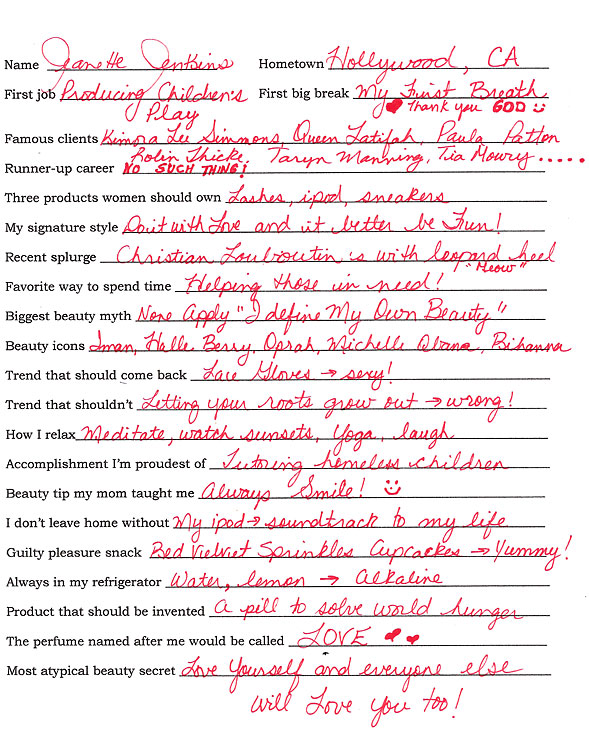 Name Jeanette Jenkins Hometown Hollywood, CA
First job Producing Children's First big break My First Breath
Play ❤ Thank you GOD
Famous clients Kimora Lee Simmons, Queen Latifah, Paula Patton
Robin Thicke, Taryn Manning, Tia Mowry.....
Runner-up career NO SUCH THING!
Three products women should own Lashes, ipod, sneakers
My signature style Do it with Love and it better be Fun!
Recent splurge Christian Louboutin's with leopard heel
"Meow"
Favorite way to spend time Helping those in need!
Biggest beauty myth None Apply "I define My Own Beauty"
Beauty icons Iman, Halle Berry, Oprah, Michelle Obama, Rihanna
Trend that should come back Lace Gloves → sexy!
Trend that shouldn't Letting your roots grow out → wrong!
How I relax Meditate, watch sunsets, Yoga, laugh
Accomplishment I'm proudest of Tutoring homeless children
Beauty tip my mom taught me Always Smile!
I don't leave home without My ipod → soundtrack to my life
Guilty pleasure snack Red Velviet Sprinkles Cupcackes → Yummy!
Always in my refrigerator Water, lemon → Alkaline
Product that should be invented A pill to solve world hunger
The perfume named after me would be called LOVE ❤❤
Most atypical beauty secret Love Yourself and everyone else
will Love you too!